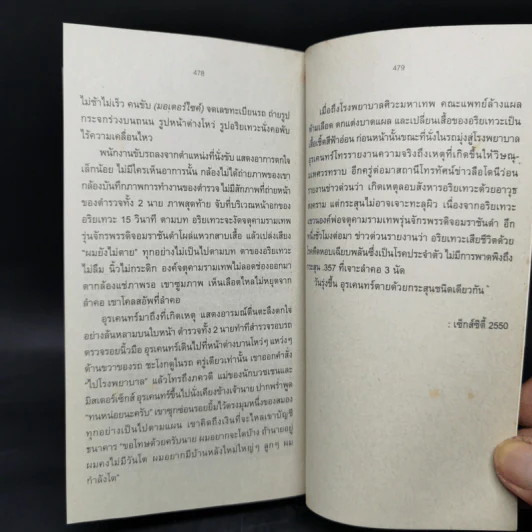 478
ไม่ช้าไม่เร็ว คนขับ (มอเตอร์ไซค์) จดเลขทะเบียนรถ ถ่ายรูป
กระจกร่วงบนถนน รูปหน้าต่างโหว่ รูปอริยเทวะนั่งคอพับ
ไร้ความเคลื่อนไหว
พนักงานขับรถลงจากตำแหน่งที่นั่งขับ แสดงอาการตกใจ
เล็กน้อย ไม่มีใครเห็นอาการนั้น กล้องไม่ได้ถ่ายภาพของเขา
กล้องบันทึกภาพการทำงานของตำรวจ ไม่มีสักภาพที่ถ่ายหน้า
ของตำรวจทั้ง 2 นาย ภาพสุดท้าย จับที่บริเวณหน้าอกของ
อริยเทวะ 15 วินาที ตามบท อริยเทวะจะงัดจตุคามรามเทพ
รุ่นจักรพรรดิจอมราชันดำโผล่แหวกสาบเสื้อ แล้วเปล่งเสียง
"ผมยังไม่ตาย" ทุกอย่างไม่เป็นไปตามบท ตาของอริยเทวะ
ไม่ลืม นิ้วไม่กระดิก องค์จตุคามรามเทพไม่ลอดช่องออกมา
ตากล้องแช่ภาพรอ เขาซูมภาพ เห็นเลือดไหลไม่หยุดจาก
ลำคอ เขาโคลสอัพที่ลำคอ
อุรเคนทร์มาถึงที่เกิดเหตุ แสดงอารมณ์ตื่นตะลึงตกใจ
อย่างล้นหลามบนใบหน้า ตำรวจทั้ง 2 นายทำทีสำรวจรอบรถ
ตรวจรอยนิ้วมือ อุรเคนทร์เดินไปที่หน้าต่างบานโหว่ๆ แหว่งๆ
ด้านขวาของรถ ชะโงกดูในรถ ครู่เดียวเท่านั้น เขาออกคำสั่ง
"ไปโรงพยาบาล" แล้วโทรถึงภควดี แม่ของนักบวชเซนและ
มิสเตอร์เซ็กส์ อุรเคนทร์ขึ้นไปนั่งเคียงข้างเจ้านาย ปากพร่ำพูด
"ทนหน่อยนะครับ" เขาซุกซ่อนรอยยิ้มไว้ตรงมุมหนึ่งของสมอง
ทุกอย่างเป็นไปตามแผน เขาคิดถึงเงินที่จะไหลเข้าบัญชี
ธนาคาร "ขอโทษด้วยครับนาย ผมอยากจะโตบ้าง ถ้านายอยู่
ผมคงไม่มีวันโต ผมอยากมีบ้านหลังใหม่ใหญ่ๆ ลูกๆ ผม
กำลังโต"
479
เมื่อถึงโรงพยาบาลศิวะมหาเทพ คณะแพทย์ล้างแผล
ห้ามเลือด ตกแต่งบาดแผล และเปลี่ยนเสื้อของอริยเทวะเป็น
เสื้อเชิ้ตสีฟ้าอ่อน ก่อนหน้านั้นขณะที่นั่งในรถมุ่งสู่โรงพยาบาล
อุรเคนทร์โทรรายงานความจริงถึงเหตุที่เกิดขึ้นให้วิษณุ-
เทศวรทราบ อีกครู่ต่อมาสถานีโทรทัศน์ข่าวลือโตนีว่อน
รายงานข่าวด่วนว่า เกิดเหตุลอบสังหารอริยเทวะด้วยอาวุธ
สงคราม แต่กระสุนไม่อาจเจาะทะลุผิว เนื่องจากอริยเทวะ
แขวนองค์พ่อจตุคามรามเทพรุ่นจักรพรรดิจอมราชันดำ อีก
หนึ่งชั่วโมงต่อมา ข่าวด่วนรายงานว่า อริยเทวะเสียชีวิตด้วย
โรคหืดหอบเฉียบพลันซึ่งเป็นโรคประจำตัว ไม่มีการพาดพิงถึง
กระสุน .357 ที่เจาะลำคอ 3 นัด
วันรุ่งขึ้น อุรเคนทร์ตายด้วยกระสุนชนิดเดียวกัน
: เซ็กส์ซิตี้ 2550